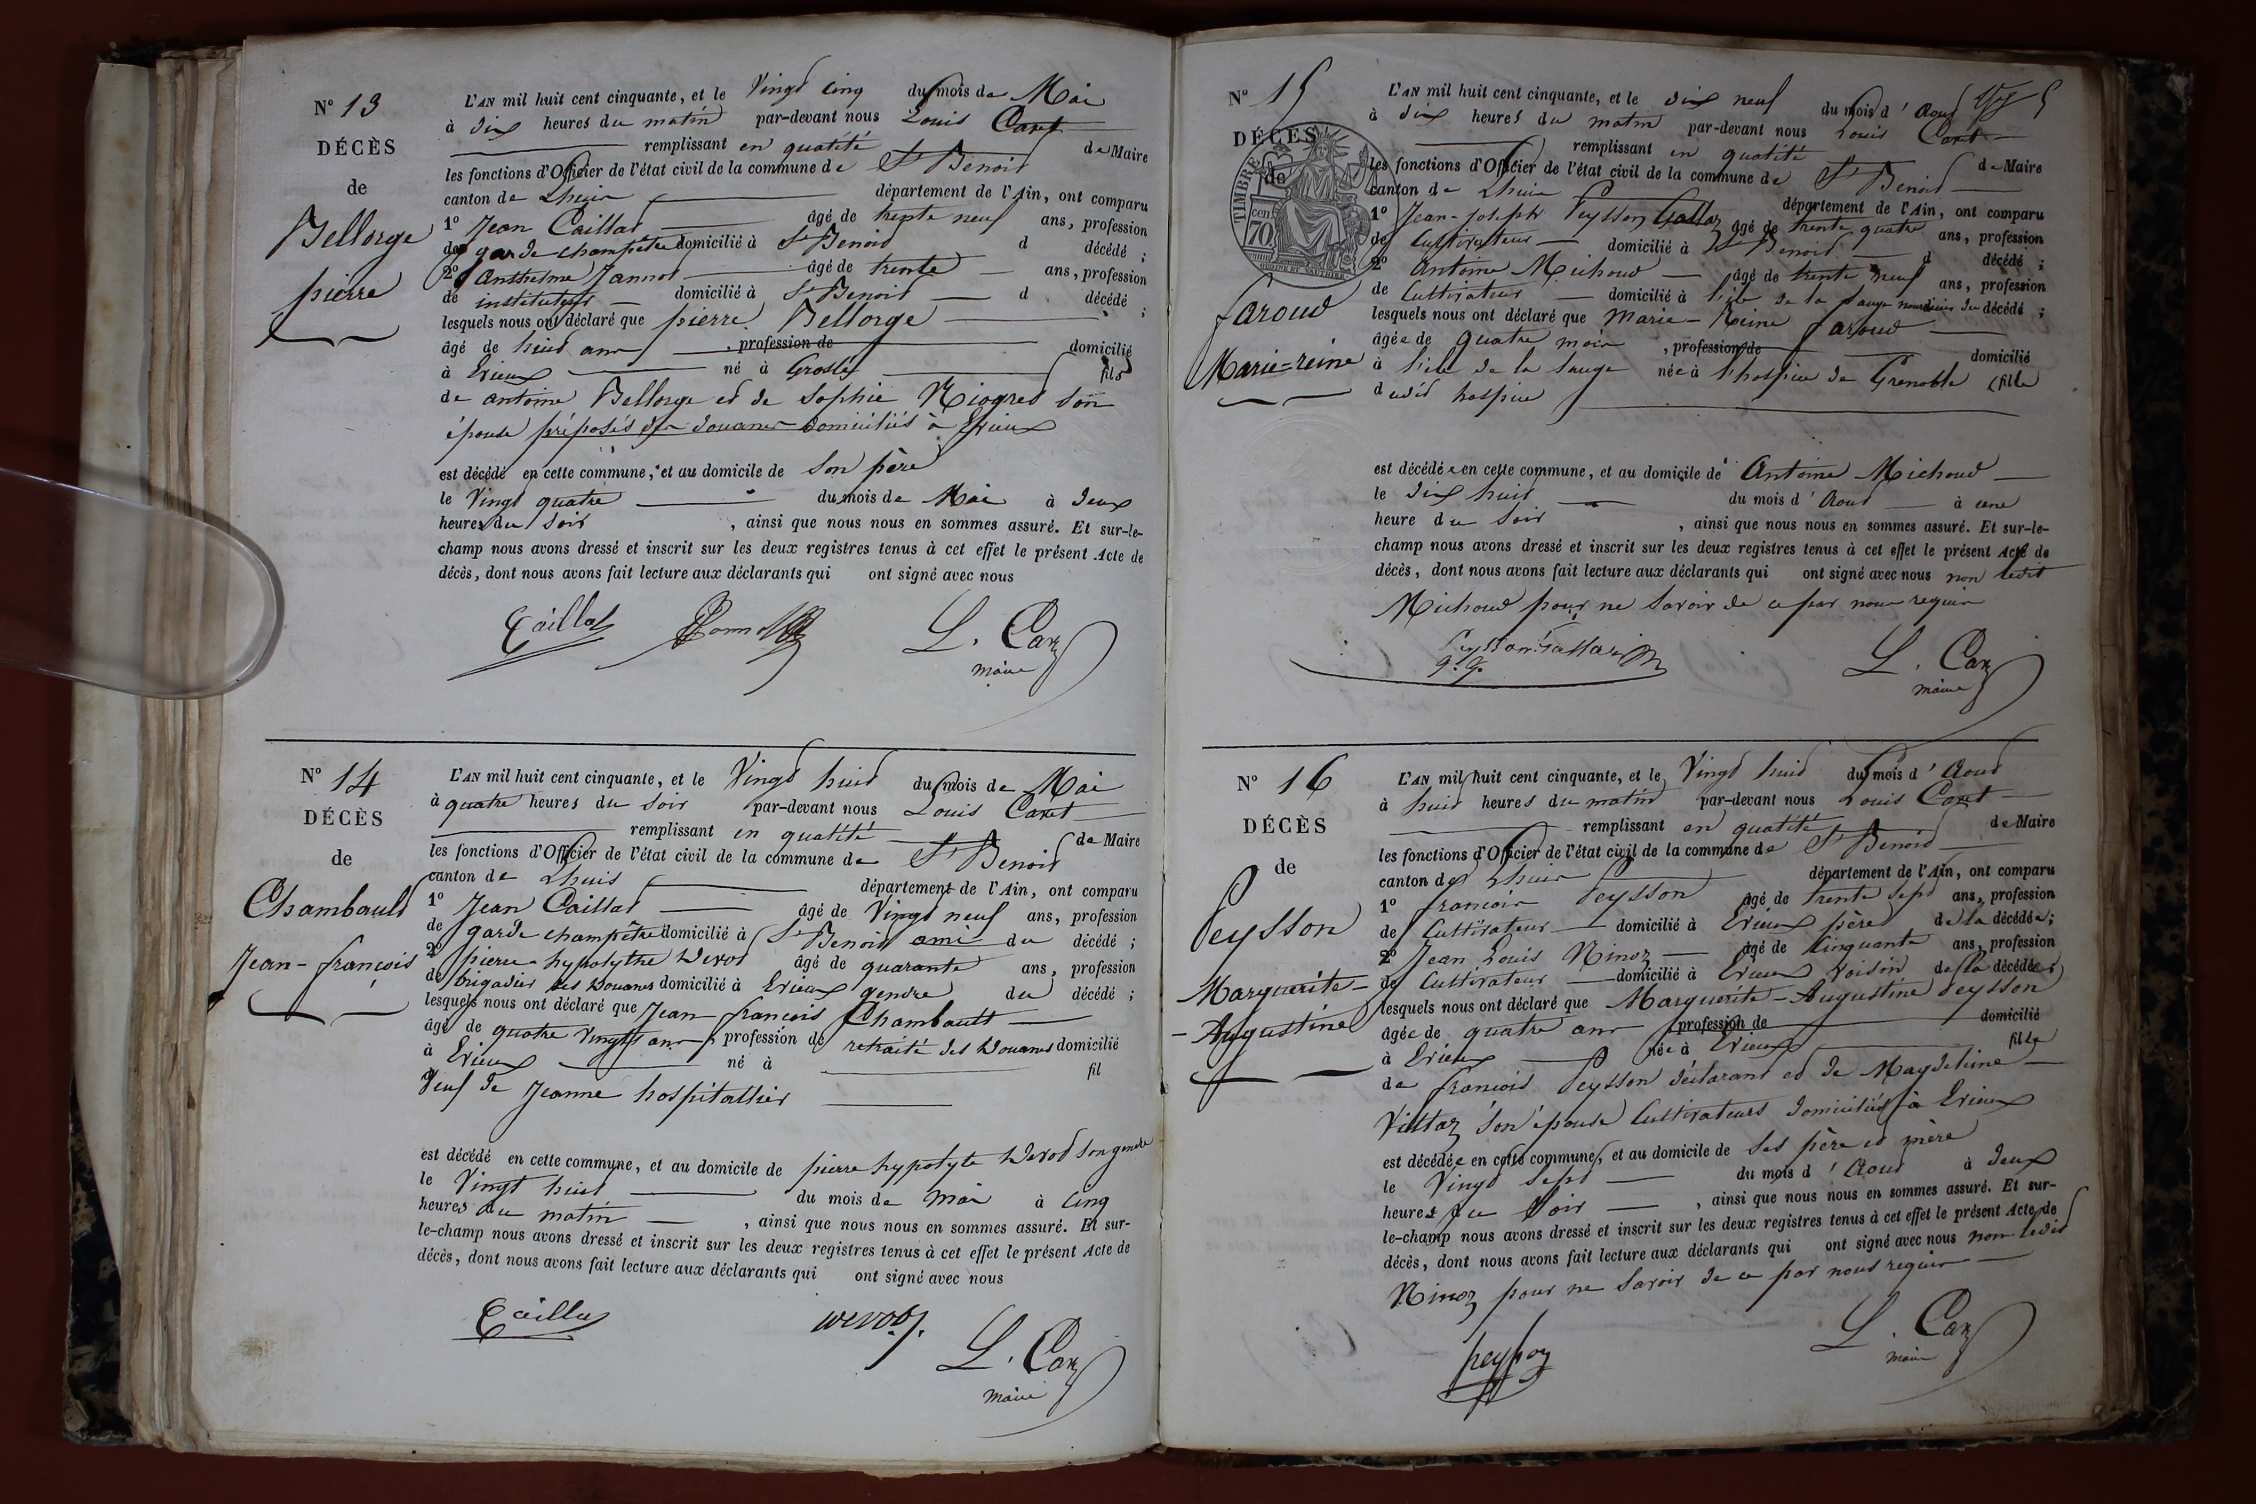 N° 13
DÉCÈS
de
Bellorge
pierre
L'AN mil huit cent cinquante, et le Vingt cinq du mois de Mai
à dix heures du matin par-devant nous Louis Caret
remplissant en qualité de Maire
les fonctions d'Officier de l'état civil de la commune de St Benoit
canton de Lhuis département de l'Ain, ont comparu
1° Jean Caillat âgé de trente neuf ans, profession
de garde champêtre domicilié à St Benoit d décédé ;
2° Anthelme Jannot âgé de trente ans, profession
de instituteur domicilié à St Benoit d décédé ;
lesquels nous ont déclaré que pierre Bellorge
âgé de huit ans , profession de domicilié
à Evieux né à Groslée fils
de antoine Bellorge et de Sophie Riogred son
épouse préposés des douanes domiciliés à Evieux
est décédé en cette commune, et au domicile de son père
le Vingt quatre du mois de Mai à deux
heures du soir , ainsi que nous nous en sommes assuré. Et sur-le-
champ nous avons dressé et inscrit sur les deux registres tenus à cet effet le présent Acte de
décès, dont nous avons fait lecture aux déclarants qui ont signé avec nous
Caillat L. Caret
maire
N° 14
DÉCÈS
de
Chambault
Jean-françois
L'AN mil huit cent cinquante, et le Vingt huit du mois de Mai
à quatre heures du soir par-devant nous Louis Caret
remplissant en qualité de Maire
les fonctions d'Officier de l'état civil de la commune de St Benoit
canton de Lhuis département de l'Ain, ont comparu
1° Jean Caillat âgé de Vingt neuf ans, profession
de garde champêtre domicilié à St Benoit ami du décédé ;
2° pierre-hypolythe Werod âgé de quarante ans, profession
de brigadier des Douanes domicilié à Evieux gendre du décédé ;
lesquels nous ont déclaré que Jean françois Chambault
âgé de quatre vingts ans , profession de retraité des Douanes domicilié
à Evieux né à fil
Veuf de Jeanne hospitallier
est décédé en cette commune, et au domicile de pierre hypolyte Werod son gendre
le Vingt huit du mois de Mai à cinq
heures du matin , ainsi que nous nous en sommes assuré. Et sur-
le-champ nous avons dressé et inscrit sur les deux registres tenus à cet effet le présent Acte de
décès, dont nous avons fait lecture aux déclarants qui ont signé avec nous
Caillat werod L. Caret
maire
N° 15
DÉCÈS
de
TIMBRE
70 cen
faroud
Marie-reine
L'AN mil huit cent cinquante, et le dix neuf du mois d'Aout
à dix heures du matin par-devant nous Louis Caret
remplissant en qualité de Maire
les fonctions d'Officier de l'état civil de la commune de St Benoit
canton de Lhuis département de l'Ain, ont comparu
1° Jean-joseph Peysson Gallaz âgé de trente quatre ans, profession
de Cultivateur domicilié à St Benoit d décédé ;
2° Antoine Michoud âgé de trente neuf ans, profession
de Cultivateur domicilié à l'ile de la Sauge nourricier du décédé ;
lesquels nous ont déclaré que Marie-Reine faroud
âgée de quatre mois , profession de domicilié
à l'ile de la Sauge née à l'hospice de Grenoble fille
dudit hospice
est décédée en cette commune, et au domicile de Antoine Michoud
le dix huit du mois d'Aout à une
heure du soir , ainsi que nous nous en sommes assuré. Et sur-le-
champ nous avons dressé et inscrit sur les deux registres tenus à cet effet le présent Acte de
décès, dont nous avons fait lecture aux déclarants qui ont signé avec nous non ledit
Michoud pour ne savoir de ce par nous requis
Peysson Gallaz L. Caret
maire
N° 16
DÉCÈS
de
Peysson
Marguerite-
-Augustine
L'AN mil huit cent cinquante, et le Vingt huit du mois d'Aout
à huit heures du matin par-devant nous Louis Caret
remplissant en qualité de Maire
les fonctions d'Officier de l'état civil de la commune de St Benoit
canton de Lhuis département de l'Ain, ont comparu
1° françois Peysson âgé de trente sept ans, profession
de Cultivateur domicilié à Evieux père de la décédée ;
2° Jean Louis Ninoz âgé de Cinquante ans, profession
de Cultivateur domicilié à Evieux voisin de la décédée ;
lesquels nous ont déclaré que Marguerite-Augustine Peysson
âgée de quatre ans , profession de domicilié
à Evieux née à Evieux fille
de françois Peysson déclarant et de Magdeleine
Villaz son épouse Cultivateurs domiciliés à Evieux
est décédée en cette commune, et au domicile de ses père et mère
le Vingt sept du mois d'Aout à deux
heures du soir , ainsi que nous nous en sommes assuré. Et sur-
le-champ nous avons dressé et inscrit sur les deux registres tenus à cet effet le présent Acte de
décès, dont nous avons fait lecture aux déclarants qui ont signé avec nous non ledit
Ninoz pour ne savoir de ce par nous requis
peysson L. Caret
maire